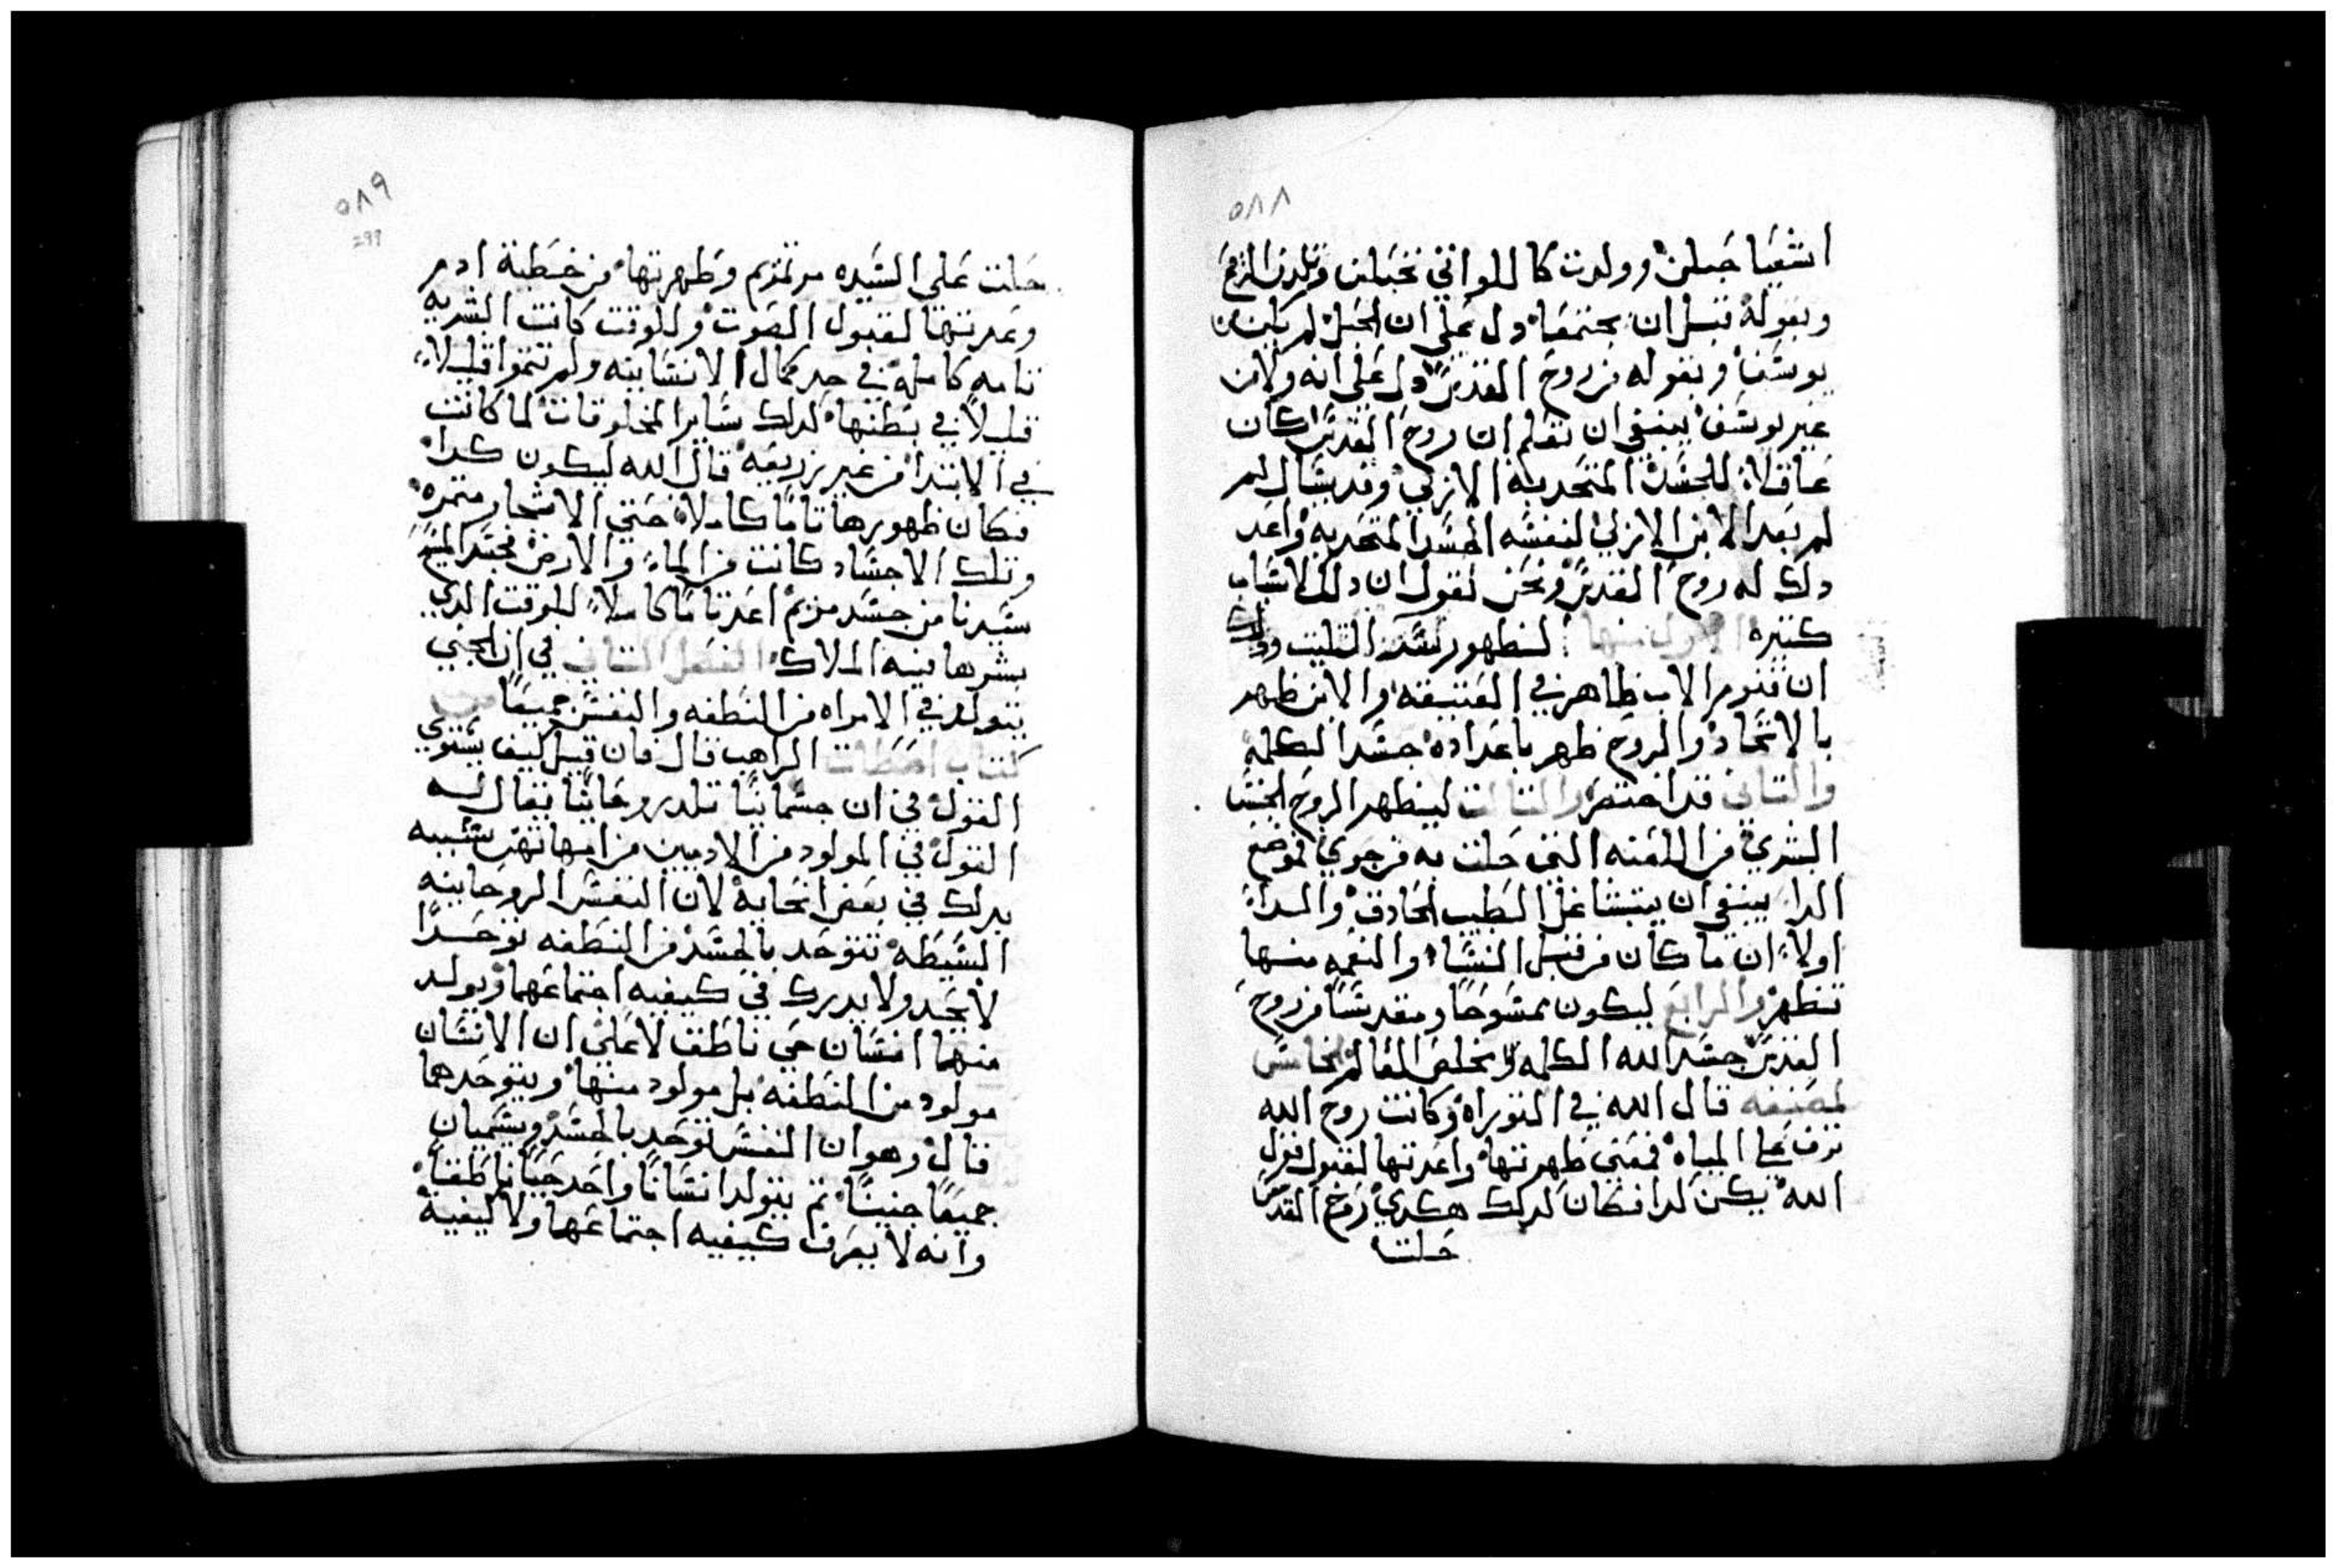 ٥٨٨
اشعيا حبلت وولدت كاللواتي تحبلن وتلدن الرجع
وبقوله قبل ان يجتمعا دل على ان الحبل لم يكن من
يوسف وبقوله من روح القدس دل على انه ولا من
غير يوسف ينبغي ان نعلم ان روح القدس كان
عاقلا للجسد المتحد به الازلي وقد يسال لم
لم يعد الابن الازلي لنفسه الجسد المتحد به واعد
دلك له روح القدس ونحن نقول ان دلك لاسباب
كتيره الاول منها ليظهور لنا التليت ودلك
ان قنوم الاب ظاهر في العتيقه والابن ظهر
بالاتحاد والروح ظهر باعداده جسد الكلمه
والتاني قد اختصر والتالت ليطهر الروح الجنس
البشري من اللعنه التي حلت به من حوي فموضع
الدا ينبغي ان يتشاغل الطبيب الحادق والدا
اولا ان ما كان من قبل النسا والنعمه منها
تظهر والرابع ليكون ممسوحا ومقدسا من روح
القدس جسد الله الكلمه ويخلص العالم الخامس
لمصنفه قال الله في التوراه وكانت روح الله
ترف على المياه فمعني طهرتها واعدتها لقبول قول
الله يكن كدا فكان كدلك هكدي روح القدس
حلت
٥٨٩
299
حلت على السيده مرتمريم وطهرتها من خطية ادم
وعدتها لقبول الصوت وللوقت كانت البشريه
تامه كامله في حد كمال الانسانيه ولم تتموا قليلا
قليلا في بطنها كدلك ساير المخلوقات لما كانت
في الابتدا من غير زريعه قال الله ليكون كدا
فكان ظهورها تاما كاملا حتي الاشجار متمره
وتلك الاجساد كانت من الما والارض فجسد المسيح
سيدنا من جسد مريم اعد تاما كاملا للوقت الدي
بشرها فيه الملاك الفصل التاني في ان الجنين
يتولد في الامراه من النطفه والنفس جميعا من
كتاب اصطات الراهب قال فان قيل كيف يستوي
القول في ان جسمانيا تلد روحانيا يقال له
القول في المولود من الادميين من امهاتهن شبيه
بدلك في بعض انحايه لان النفس الروحانيه
البسيطه تتوحد بالجسد من النطفه توحدا
لا يحد ولا يدرك في كيفيه اجتماعهما ويولد
منهما انسان حي ناطق لا على ان الانسان
مولود من النطفه بل مولود منها ويتوحدهما
قال وهو ان النفس توحد بالجسد ويسميان
جميعا جنينا تم يتولد انسانا واحد حيا ناطقا
وانه لا يعرف كيفيه اجتماعهما ولا كيفية